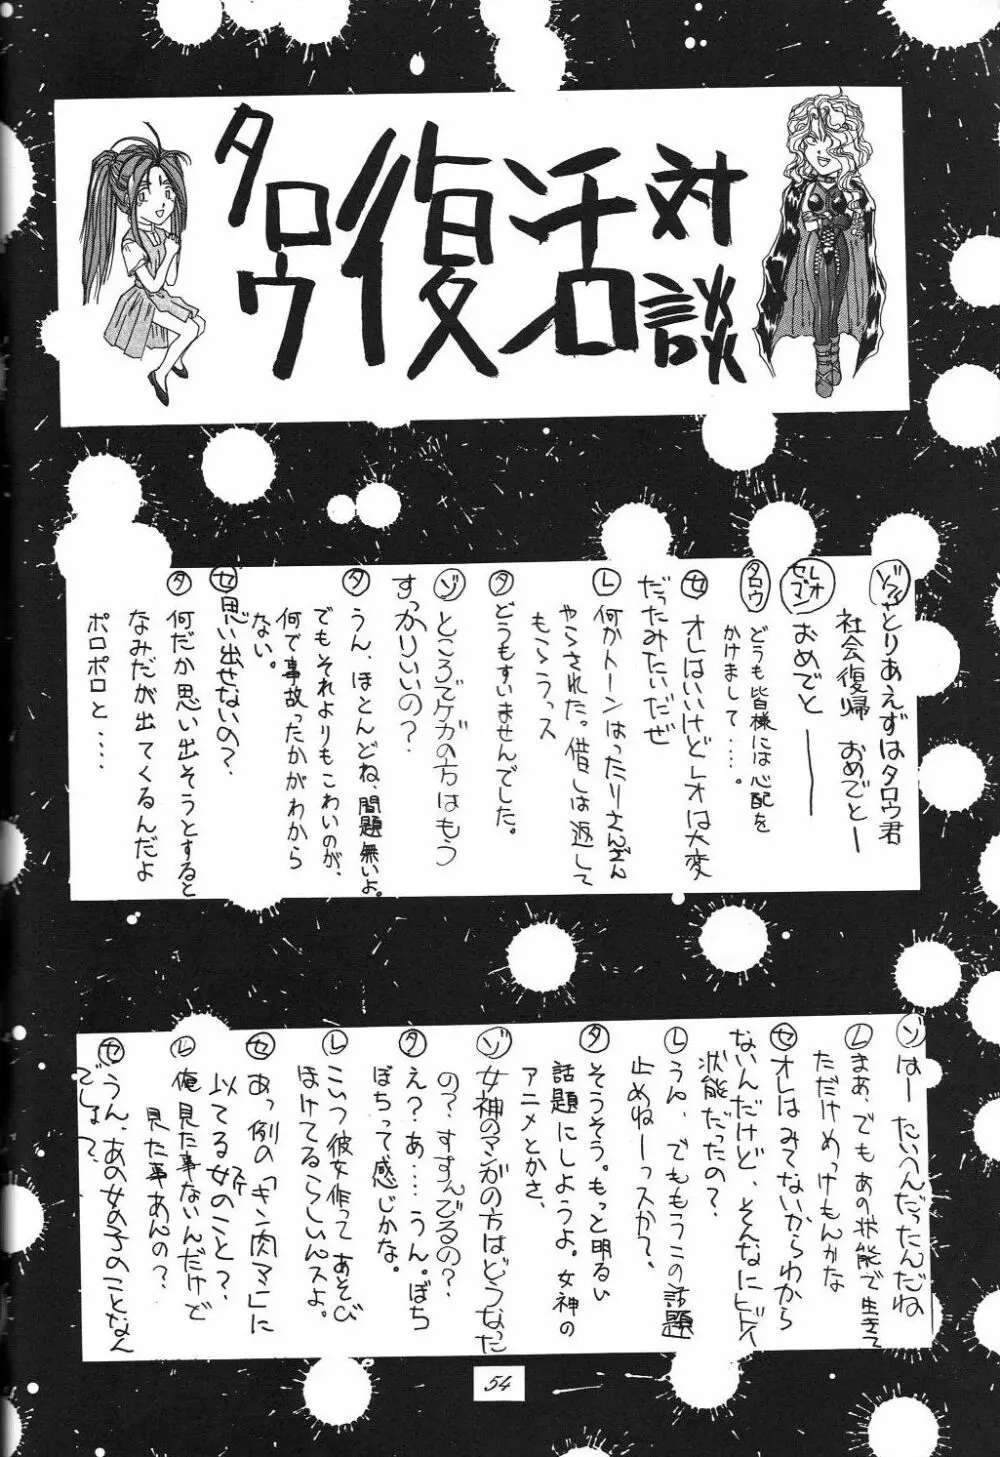 タロウ復活対談
ゾヱとりあえずはタロウ君
社会復帰 おめでとー
レオ
セブマン
おめでと
タロウ
どうも皆様には心配を
かけまして‥‥。
セ オレはいいけどレオは大変
だったみたいだぜ
レ 何かトーンはったりさんざん
やらされた。借しは返して
もらうっス
タ どうもすいませんでした。
ゾ ところでケガの方はもう
すっかりいいの?
タ うん、ほとんどね、問題無いよ。
でもそれよりもこわいのが、
何で事故ったかがわから
ない。
セ 思い出せないの?
タ 何だか思い出そうとすると
なみだが出てくるんだよ
ポロポロと‥‥
ゾ はーたいへんだったんだね
レ まあ、でもあの状態で生きて
ただけめっけもんかな
セ オレはみてないからわから
ないんだけど、そんなにヒドイ
状態だったの?
レ うん、でももうこの話題
止めねーっスか?
タ そうそう。もっと明るい
話題にしようよ。女神の
アニメとかさ、
ゾ 女神のマンガの方はどうなった
の?すすんでるの?
タ え?あ‥‥うん。ぼち
ぼちって感じかな。
レ こいつ彼女作って あそび
ほけてるらしいんスよ。
セ あっ例の「キン肉マン」に
以てる女のこと?
レ 俺見た事ないんだけど
見た事あんの?
セ うん、あの女の子のことなん
でしょ?
54